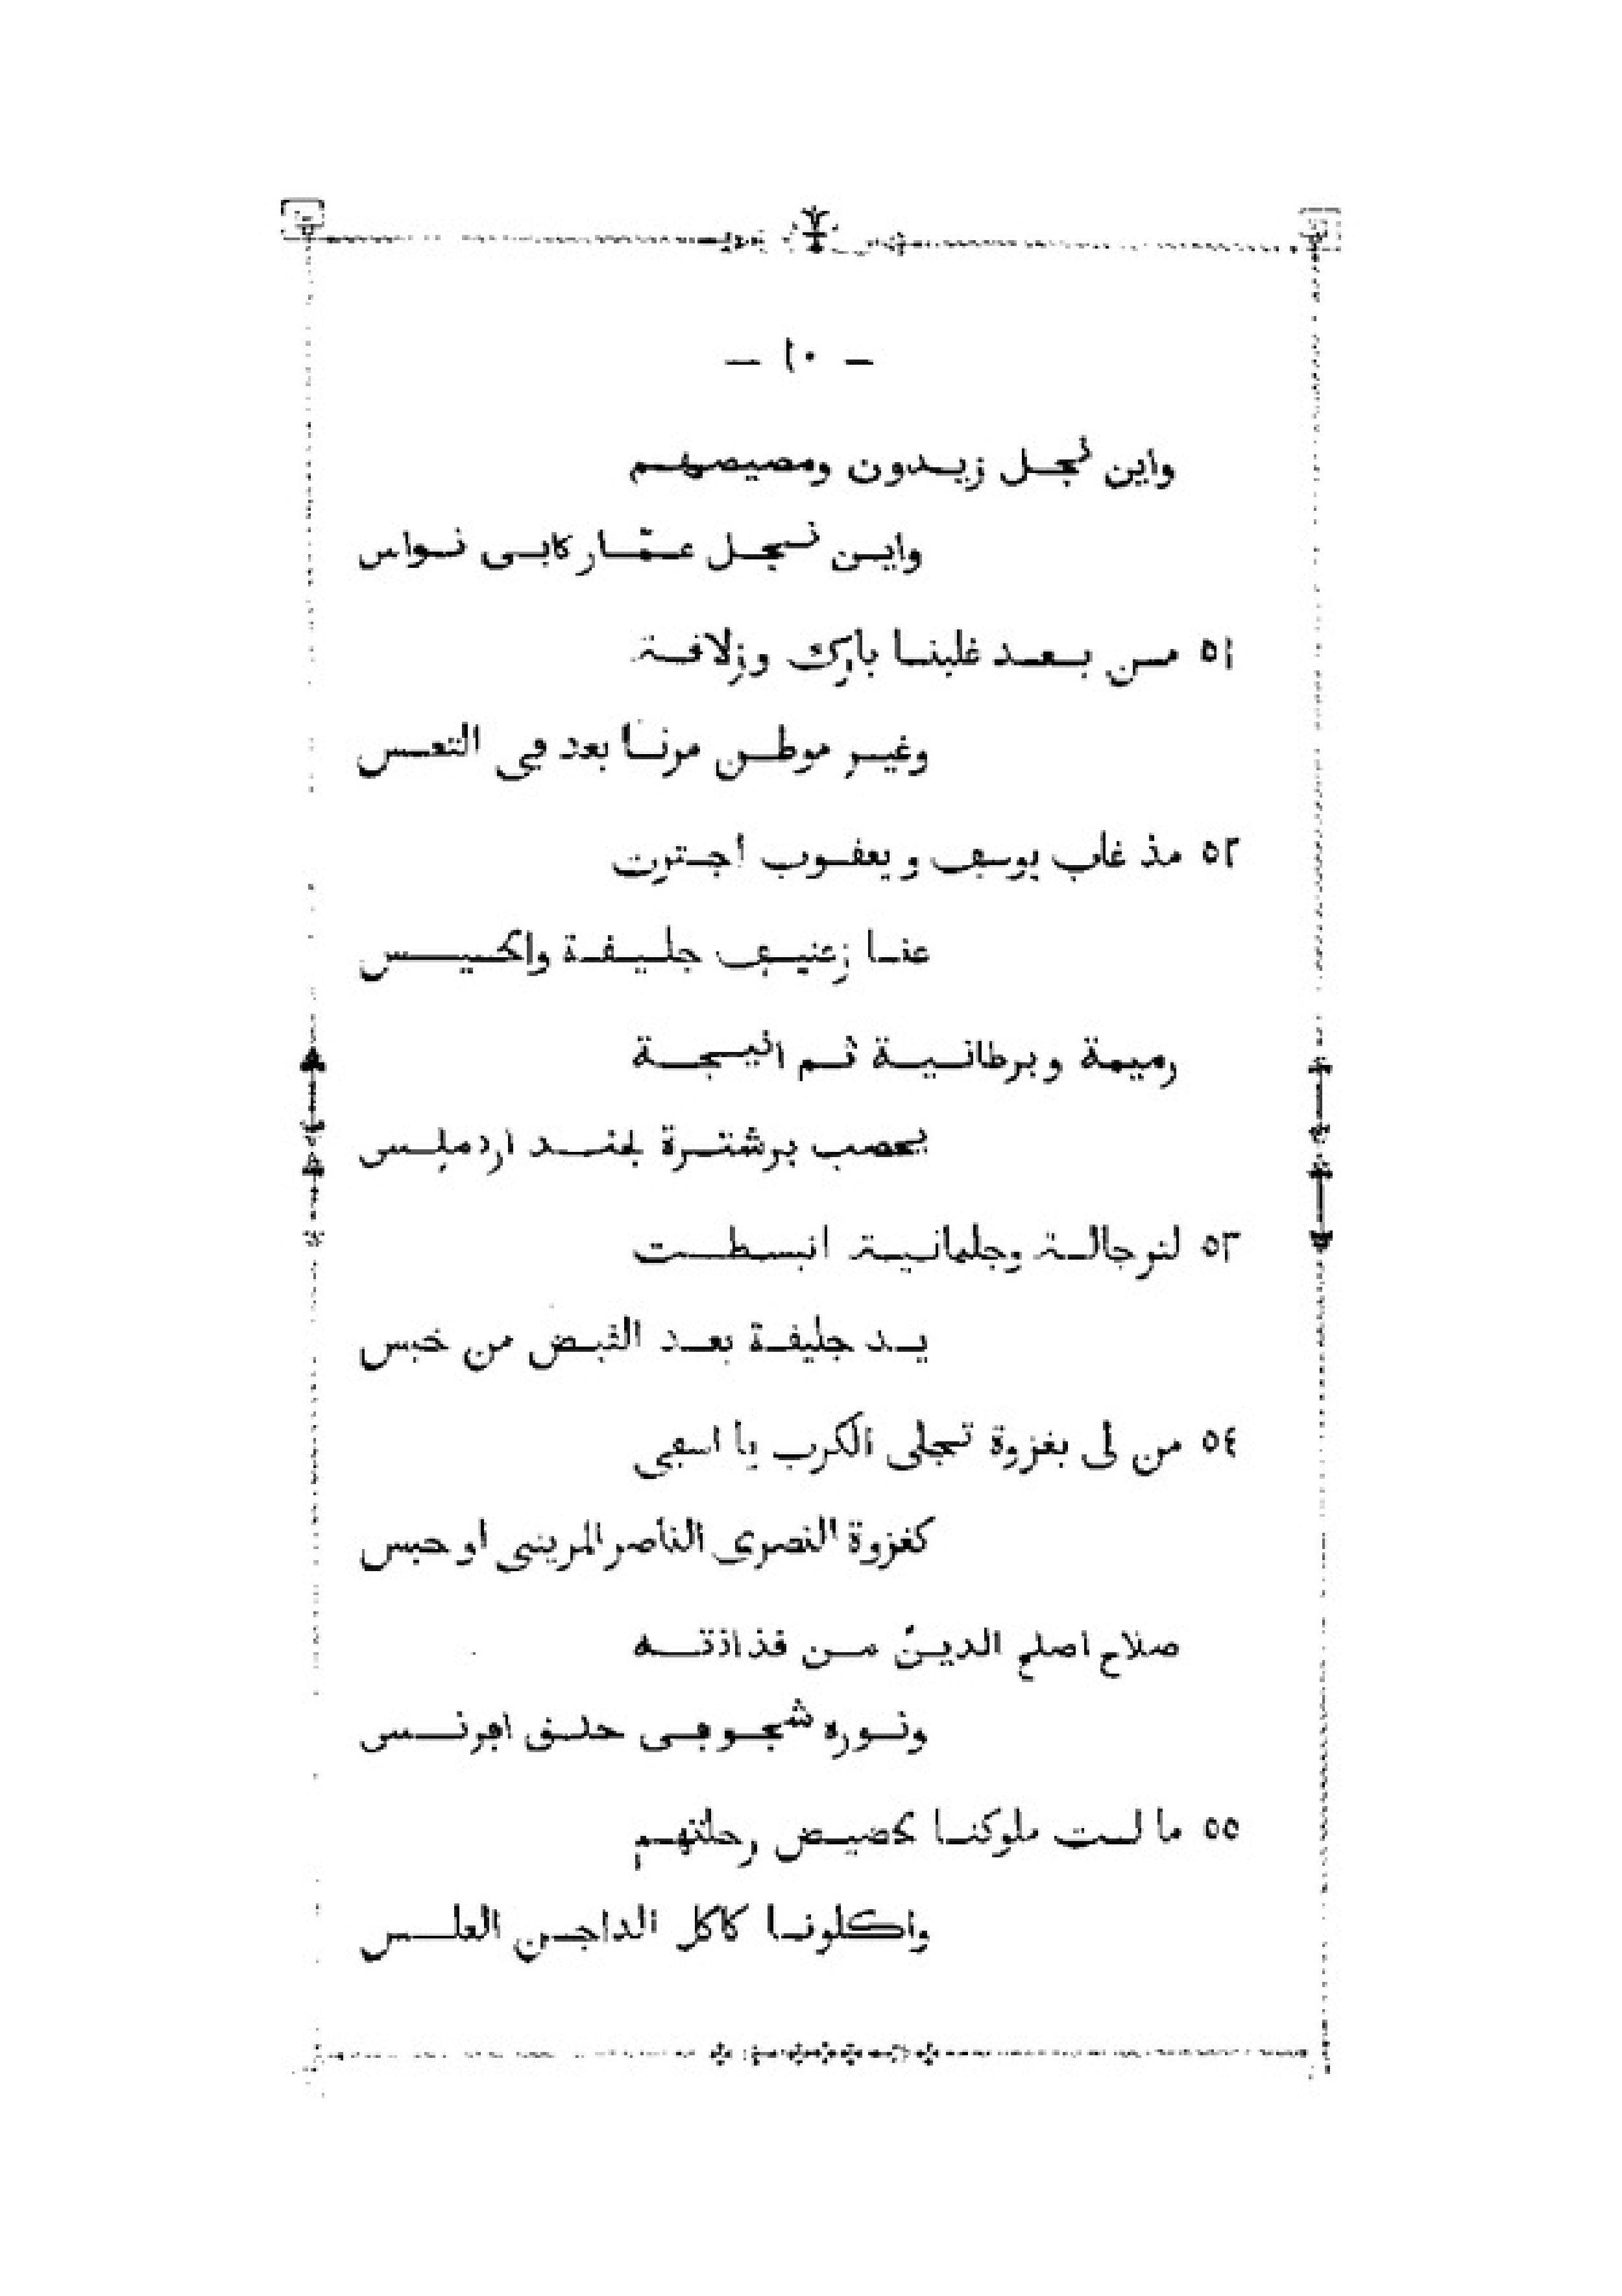 — ١٠ —
واين نجل زيدون ومصيصهم
واين نجل عمّار كابى نواس
٥١ من بعد غلبنا بارك وزلافة
وغير موطن مرنا بعد في التعس
٥٢ مذ غاب يوسڢ ويعفوب اجترت
عنا زعنيڢ جليفة والحيس
رميمة وبرطانية ثم اليجة
يحصب برشترة لجند اردملس
٥٣ لنرجالة وجلمانية انبسطت
يد جليفة بعد الفبض من خبس
٥٤ من لى بغزوة تجلى الكرب يا اسڢى
كغزوة النصرى الناصر المرينى او حبس
صلاح اصلح الدين من فذاذته
ونوره شجو ڢى حلف اڢرنس
٥٥ ما لست ملوكنا بحضيض رحلتهم
واكلونا كاكل الداجن العلس